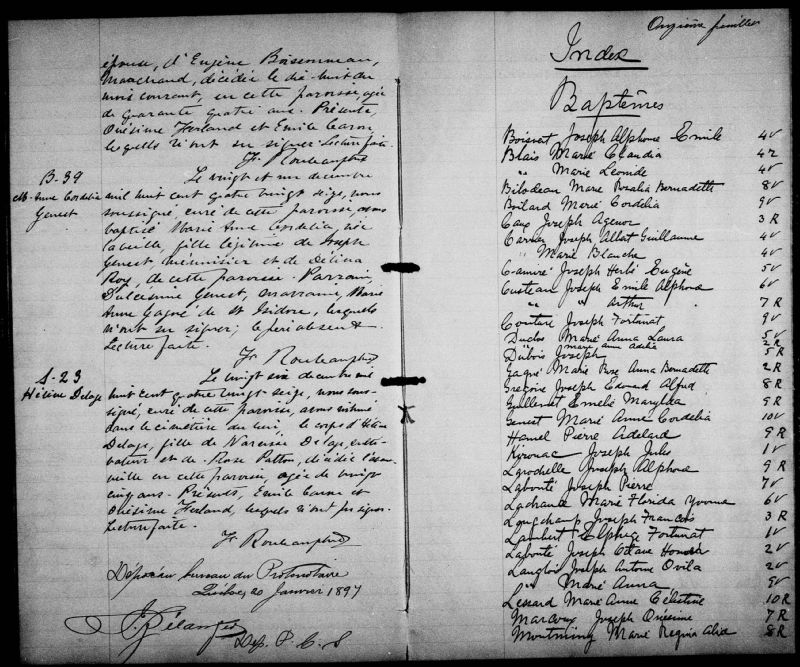 épouse, d'Eugène Boissonneau,
Marchand, décédée le dix-huit du
mois courant, en cette paroisse, agée
de quarante quatre ans. Présents,
Onésime Ferland et Emile Caron
lesquels n'ont su signer. Lecture faite.
B-39
M. Anne Cordelia
Genest
Le vingt et un decembre
mil huit cent quatre vingt seize, nous
soussigné, curé de cette paroisse, avons
baptisé Marie Anne Cordelia, née
la veille, fille légitime de Joseph
Genest, menuisier et de Délina
Roy, de cette paroisse. Parrain,
Genest, marraine, Marie
Anne Gagné de St Isidore, lesquels
n'ont su signer; le père absent.
Lecture faite.
S-23
Hélène Delage
Le vingt six decembre mil
huit cent quatre vingt seize, nous sous-
signé, curé de cette paroisse, avons inhumé
dans le cimetière du lieu, le corps d'Hélène
Delage, fille de Narcisse Delage, culti-
vateur et de Rose Patton, décédée l'avant
veille en cette paroisse, agée de vingt
cinq ans. Présents, Emile Caron et
Onésime Ferland, lesquels n'ont pu signer.
Lecture faite.
Déposé au bureau du Protonotaire
Québec, 20 Janvier 1897
Dep. P. C. S
Onzième feuillet
Index
Baptêmes
Boisvert Joseph Alphonse Emile 4V
Blais Marie Claudia 4R
" Marie Leonide 4V
Bilodeau Marie Rosalia Bernadette 8V
Boilard Marie Cordelia 9V
Caux Joseph Agenor 3R
Carrier Joseph Albert Guillaume 4V
" Marie Blanche 4V
Camiré Joseph Eugène 5V
Custeau Joseph Emile Alphonse 6V
" " Arthur 7R
Couture Joseph Fortunat 9V
Duclos Marie Anna Laura 5V
Marie Anne Adelia 2R
Dubois Joseph 5R
Gagné Marie Rose Anna Bernadette 2R
Gregoire Joseph Edouard Alfred 8R
Guillemet Emelie 9R
Genest Marie Anne Cordelia 10V
Hamel Pierre Adelard 9R
Kirouac Joseph Jules 1V
Larochelle Joseph Alphonse 9R
Labonté Joseph Pierre 7V
Lachance Marie Florida Yvonne 6V
Longchamp Joseph François 3R
Lambert Elphege Fortunat 1V
Labonté Joseph Honoré 2V
Langlois Joseph Antoine Ovila 2V
" Marie Anna 9V
Lessard Marie Anne Célestine 10R
Marcoux Joseph Onésime 7R
Montminy Marie Regina Alice 8R